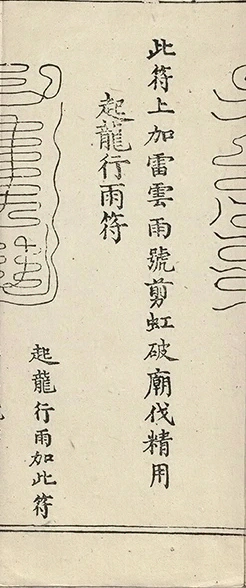 此符上加雷雲雨號剪虹破廟伐精用
起龍行雨符
起龍行雨加此符